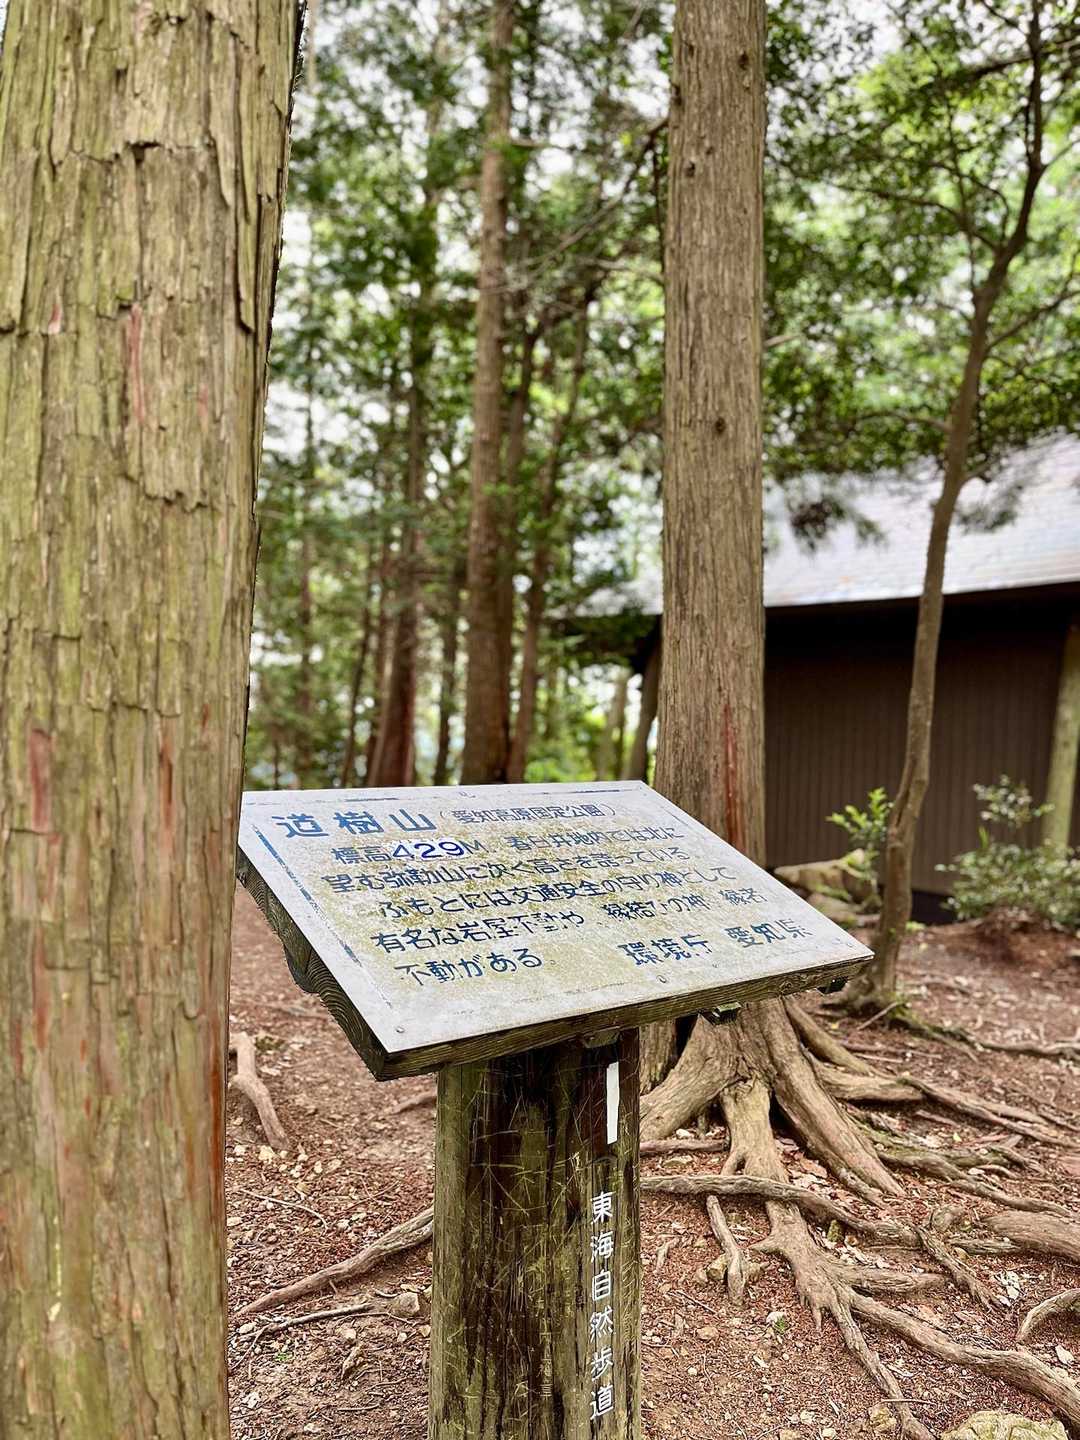 道樹山（愛知高原国定公園）
標高429M 春日井地内では北に
望む弥勒山に次ぐ高さを誇っている
ふもとには交通安全の守り神として
有名な岩屋不動や 縁結びの神、縁者
不動がある。 環境庁 愛知県
東海自然歩道